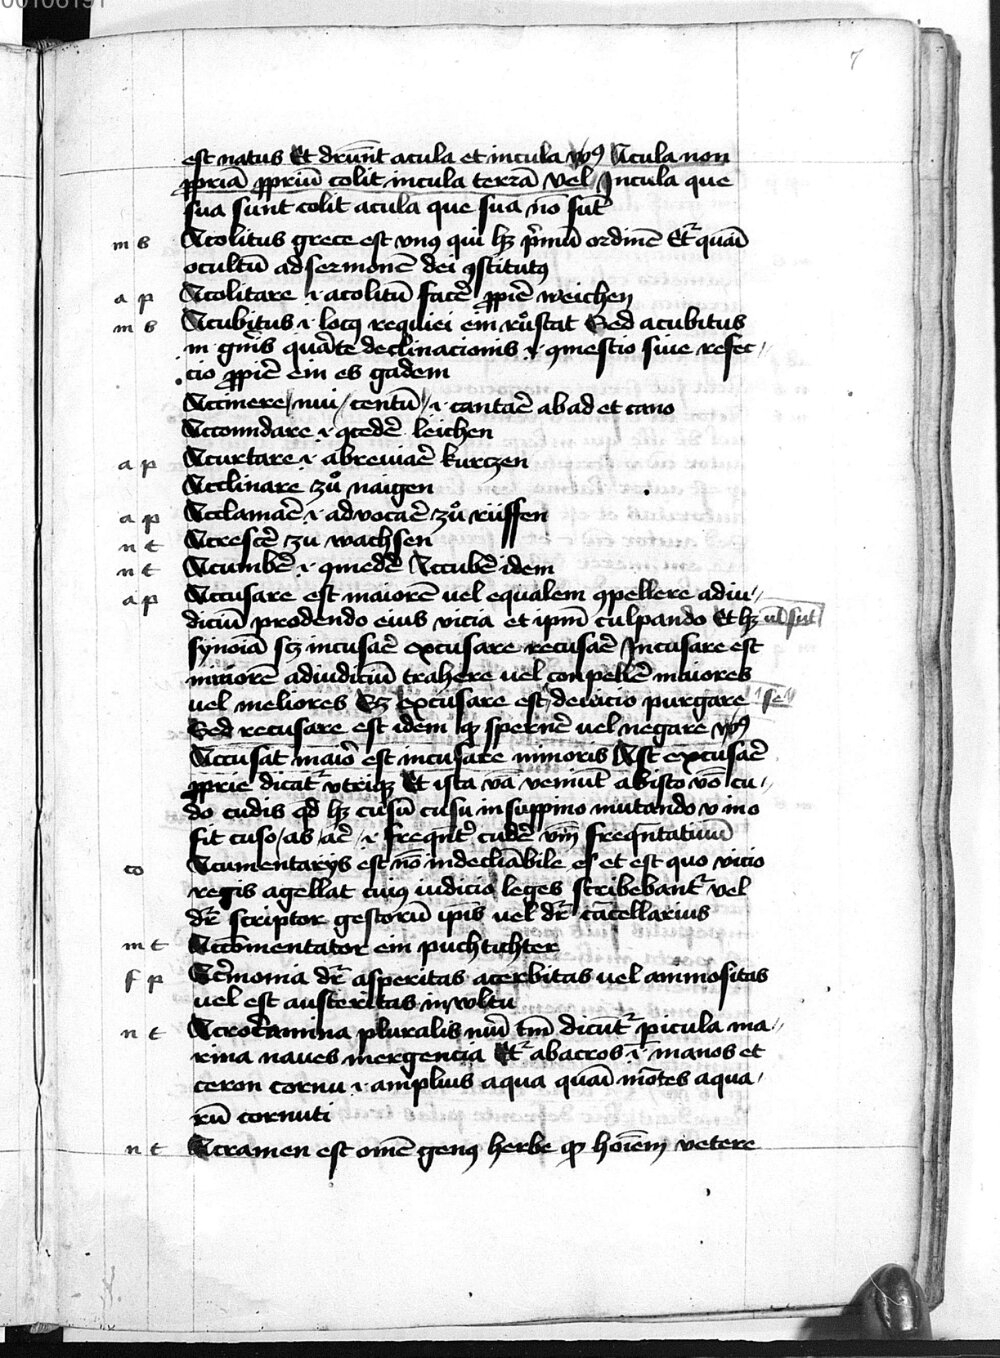 00106191
7
est natus Et drūnt acula et incula vꝰ Acula non
ꝓpriā ꝓpriū colit incula terrā vel Incula que
sua sunt colit acula que sua nō sūt
m s Acolitus grece est vnꝰ qui hꝫ p̄mū ordinē Et quāi
ocultū ad sermonē dei ꝯstitutꝰ
a p Acolitare .i. acolitū facē ꝓpiē weichen
m s Acubitus .i. locꝰ requiei ein růstat Sed acubitus
in gn̄is quārte declinacionis .i. ꝯmestio siue refec//
cio ꝓpiē ein es gadem
Accinere / nui / centū / .i. cantaē ab ad et cano
Accomdare .i. ꝯcedē leichen
a p Acurtare .i. abreuiaē kurczen
Acclinare zů naigen
a p Acclamaē .i. advocaē zů rüffen
n t Acrescē zu wachsen
n t Acumbē .i. ꝯmedē Accubē idem
a p Accusare est maiorē uel equalem ꝯpellere ad iu//
diciū prodendo eius vicia et ipm̄ culpando Et hꝫ ul sūt
synoīa scꝫ incusaē excusare recusaē Incusare est
minorē ad iudiciū trahere uel conpellē maiores
uel meliores Sꝫ excusare est de uicio purgare se
Sed recusare est idem qꝫ spernē uel negare vꝰ
Accusat maiōr est incusare minoris Ast excusaē
ꝓprie dicat͛ vtriqꝫ Et ista v̄a veniūt ab isto v̄o cu//
do cudis qd hꝫ cusū cusu in suppino mutando v in o
fit cuso / as / aē / .i. freqn̄t͛ cudē vn̄ freqn̄tatiuū
co Acumentarys est nō indecliābile et est quo vicio
regis agellat cuiꝰ iudicio leges scribebant͛ vel
dr̄ scriptor gestorū ip̄is uel dr̄ cācellarius
m t Accōmentator ein puchtichter
f p Acrīmonia dr̄ asperitas acerbitas uel ammositas
uel est austeritas in vvltu
n t Acrocāmina pluralis nūi tm̄ dicūt͛ picula ma//
rina naues mergencia Et ab acros .i. manos et
ceron cornu .i. amplius aqua quāi mōtes aqua//
rū cornuti
n t Acramen est om̄e genꝰ herbe qꝫ hoīem vetere